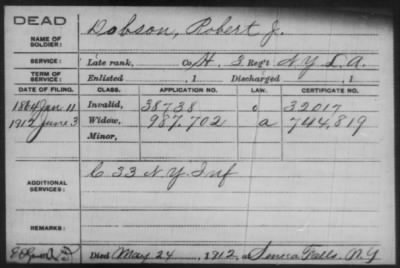 DEAD
NAME OF SOLDIER: Dobson, Robert J.
SERVICE: Late rank, Co H. 3 Reg't N.Y. L.A.
TERM OF SERVICE: Enlisted , 1 Discharged , 1
DATE OF FILING. CLASS. APPLICATION NO. LAW. CERTIFICATE NO.
1864 Jan. 11 Invalid, 38738 32017
1912 June 3 Widow, 987.702 a 744,819
Minor,
ADDITIONAL SERVICES: C 33 N.Y. Inf
REMARKS:
Died May 24, 1912, at Seneca Falls. N.Y